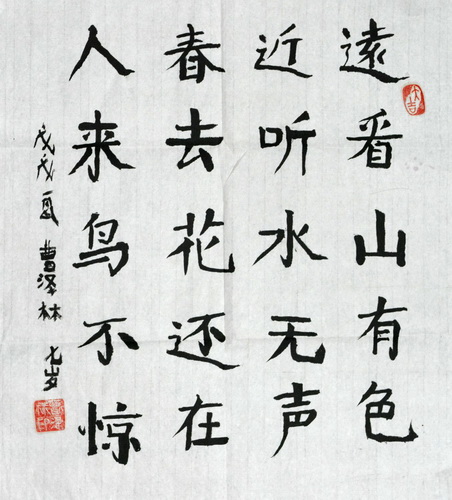 遠看山有色
近听水无声
春去花还在
人来鸟不惊
戊戌夏 曹泽林 七岁